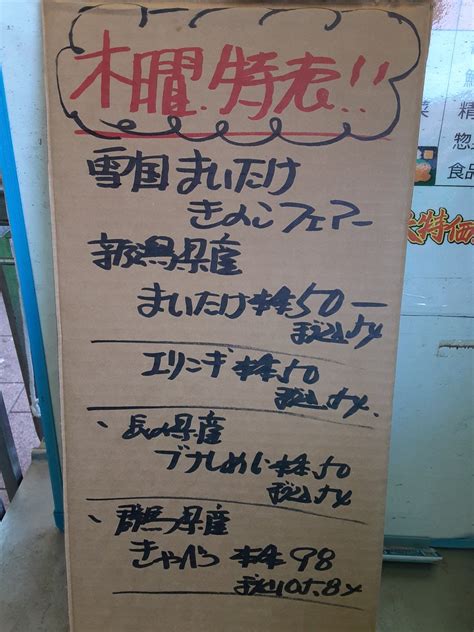 木曜.特売!!
雪国まいたけ
きのこフェアー
新潟県産
まいたけ 本体50ー
税込54
エリンギ 本体50
税込54.
、長野県産
ブナしめじ 本体50
税込54
、群馬県産
きゃべつ 本体98
税込105.84
菜
精
惣
食品
大特価